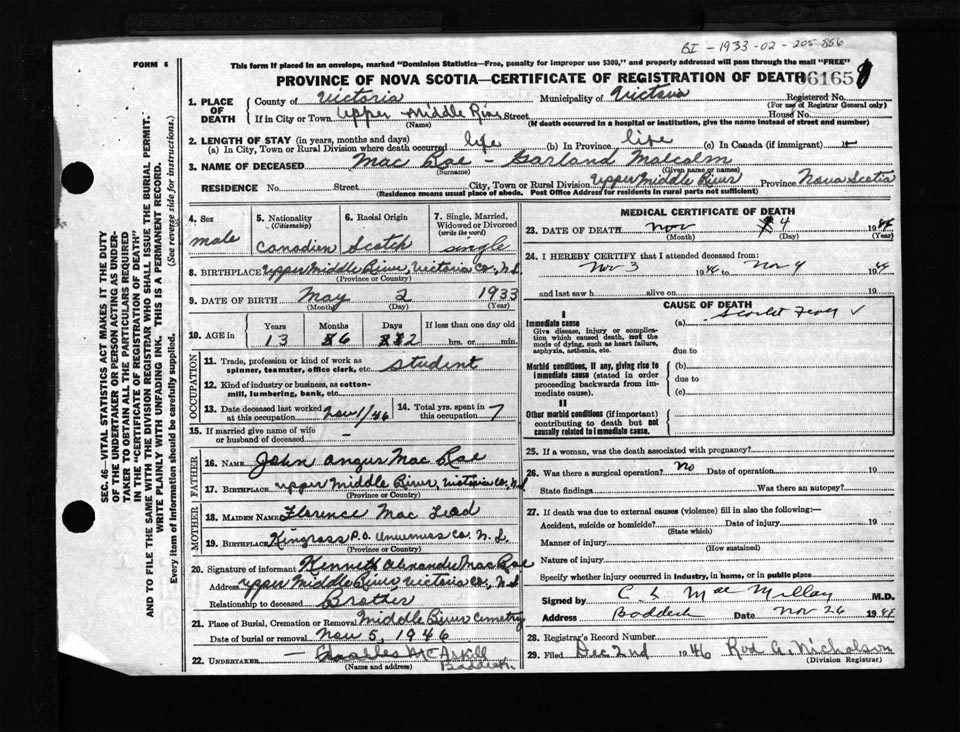 BI - 1933-02-205-856
FORM 6
This form if placed in an envelope, marked "Dominion Statistics—Free, penalty for improper use $300," and properly addressed will pass through the mail "FREE"
PROVINCE OF NOVA SCOTIA—CERTIFICATE OF REGISTRATION OF DEATH
6165
1. PLACE OF DEATH
County of Victoria Municipality of Victoria Registered No.
(For use of Registrar General only)
If in City or Town Upper Middle River Street House No.
(Name) (If death occurred in a hospital or institution, give the name instead of street and number)
2. LENGTH OF STAY (in years, months and days)
(a) In City, Town or Rural Division where death occurred life (b) In Province life (c) In Canada (if immigrant)
3. NAME OF DECEASED Mac Rae - Garland Malcolm
(Surname) (Given name or names)
RESIDENCE No. Street City, Town or Rural Division Upper Middle River Province Nova Scotia
(Residence means usual place of abode. Post Office Address for residents in rural parts not sufficient)
4. Sex male
5. Nationality (Citizenship) Canadien
6. Racial Origin Scotch
7. Single, Married, Widowed or Divorced (write the word) single
8. BIRTHPLACE Upper Middle River, Victoria Co., N.S.
(Province or Country)
9. DATE OF BIRTH May 2 1933
(Month) (Day) (Year)
10. AGE in Years Months Days If less than one day old
13 6 2 hrs. or min.
OCCUPATION
11. Trade, profession or kind of work as spinner, teamster, office clerk, etc. student
12. Kind of industry or business, as cotton-mill, lumbering, bank, etc.
13. Date deceased last worked at this occupation Nov 1/46
14. Total yrs. spent in this occupation 7
15. If married give name of wife or husband of deceased -
FATHER
16. NAME John Angus Mac Rae
17. BIRTHPLACE Upper Middle River, Victoria Co., N.S.
(Province or Country)
MOTHER
18. MAIDEN NAME Florence Mac Leod
19. BIRTHPLACE Kingross P.O. Inverness Co. N.S.
(Province or Country)
20. Signature of informant Kenneth Alexander Mac Rae
Address Upper Middle River, Victoria Co., N.S.
Relationship to deceased Brother
21. Place of Burial, Cremation or Removal Middle River Cemetry
Date of burial or removal Nov 5, 1946
22. UNDERTAKER Charles McAskill
Baddeck
(Name and address)
MEDICAL CERTIFICATE OF DEATH
23. DATE OF DEATH Nov 4 19
(Month) (Day) (Year)
24. I HEREBY CERTIFY that I attended deceased from:
Nov 3 19 to Nov 4 19
and last saw h alive on 19
CAUSE OF DEATH
I
Immediate cause (a) Scarlet Fever ✓
Give disease, injury or complication which caused death, not the mode of dying, such as heart failure, asphyxia, asthenia, etc.
due to
Morbid conditions, if any, giving rise to immediate cause (stated in order proceeding backwards from immediate cause). (b)
due to
(c)
II
Other morbid conditions (if important) contributing to death but not causally related to immediate cause.
25. If a woman, was the death associated with pregnancy?
26. Was there a surgical operation? no Date of operation 19
State findings Was there an autopsy?
27. If death was due to external causes (violence) fill in also the following:—
Accident, suicide or homicide? Date of injury 19
(State which)
Manner of injury
(How sustained)
Nature of injury
Specify whether injury occurred in industry, in home, or in public place
Signed by C L MacMillan M.D.
Address Baddeck Date Nov 26 19
28. Registrar's Record Number
29. Filed Dec 2nd 1946 Rod A. Nicholson
(Division Registrar)
SEC. 46—VITAL STATISTICS ACT MAKES IT THE DUTY
OF THE UNDERTAKER OR PERSON ACTING AS UNDER-
TAKER TO OBTAIN ALL THE PARTICULARS REQUIRED
IN THE "CERTIFICATE OF REGISTRATION OF DEATH"
AND TO FILE THE SAME WITH THE DIVISION REGISTRAR WHO SHALL ISSUE THE BURIAL PERMIT.
WRITE PLAINLY WITH UNFADING INK. THIS IS A PERMANENT RECORD.
Every item of information should be carefully supplied. (See reverse side for instructions.)